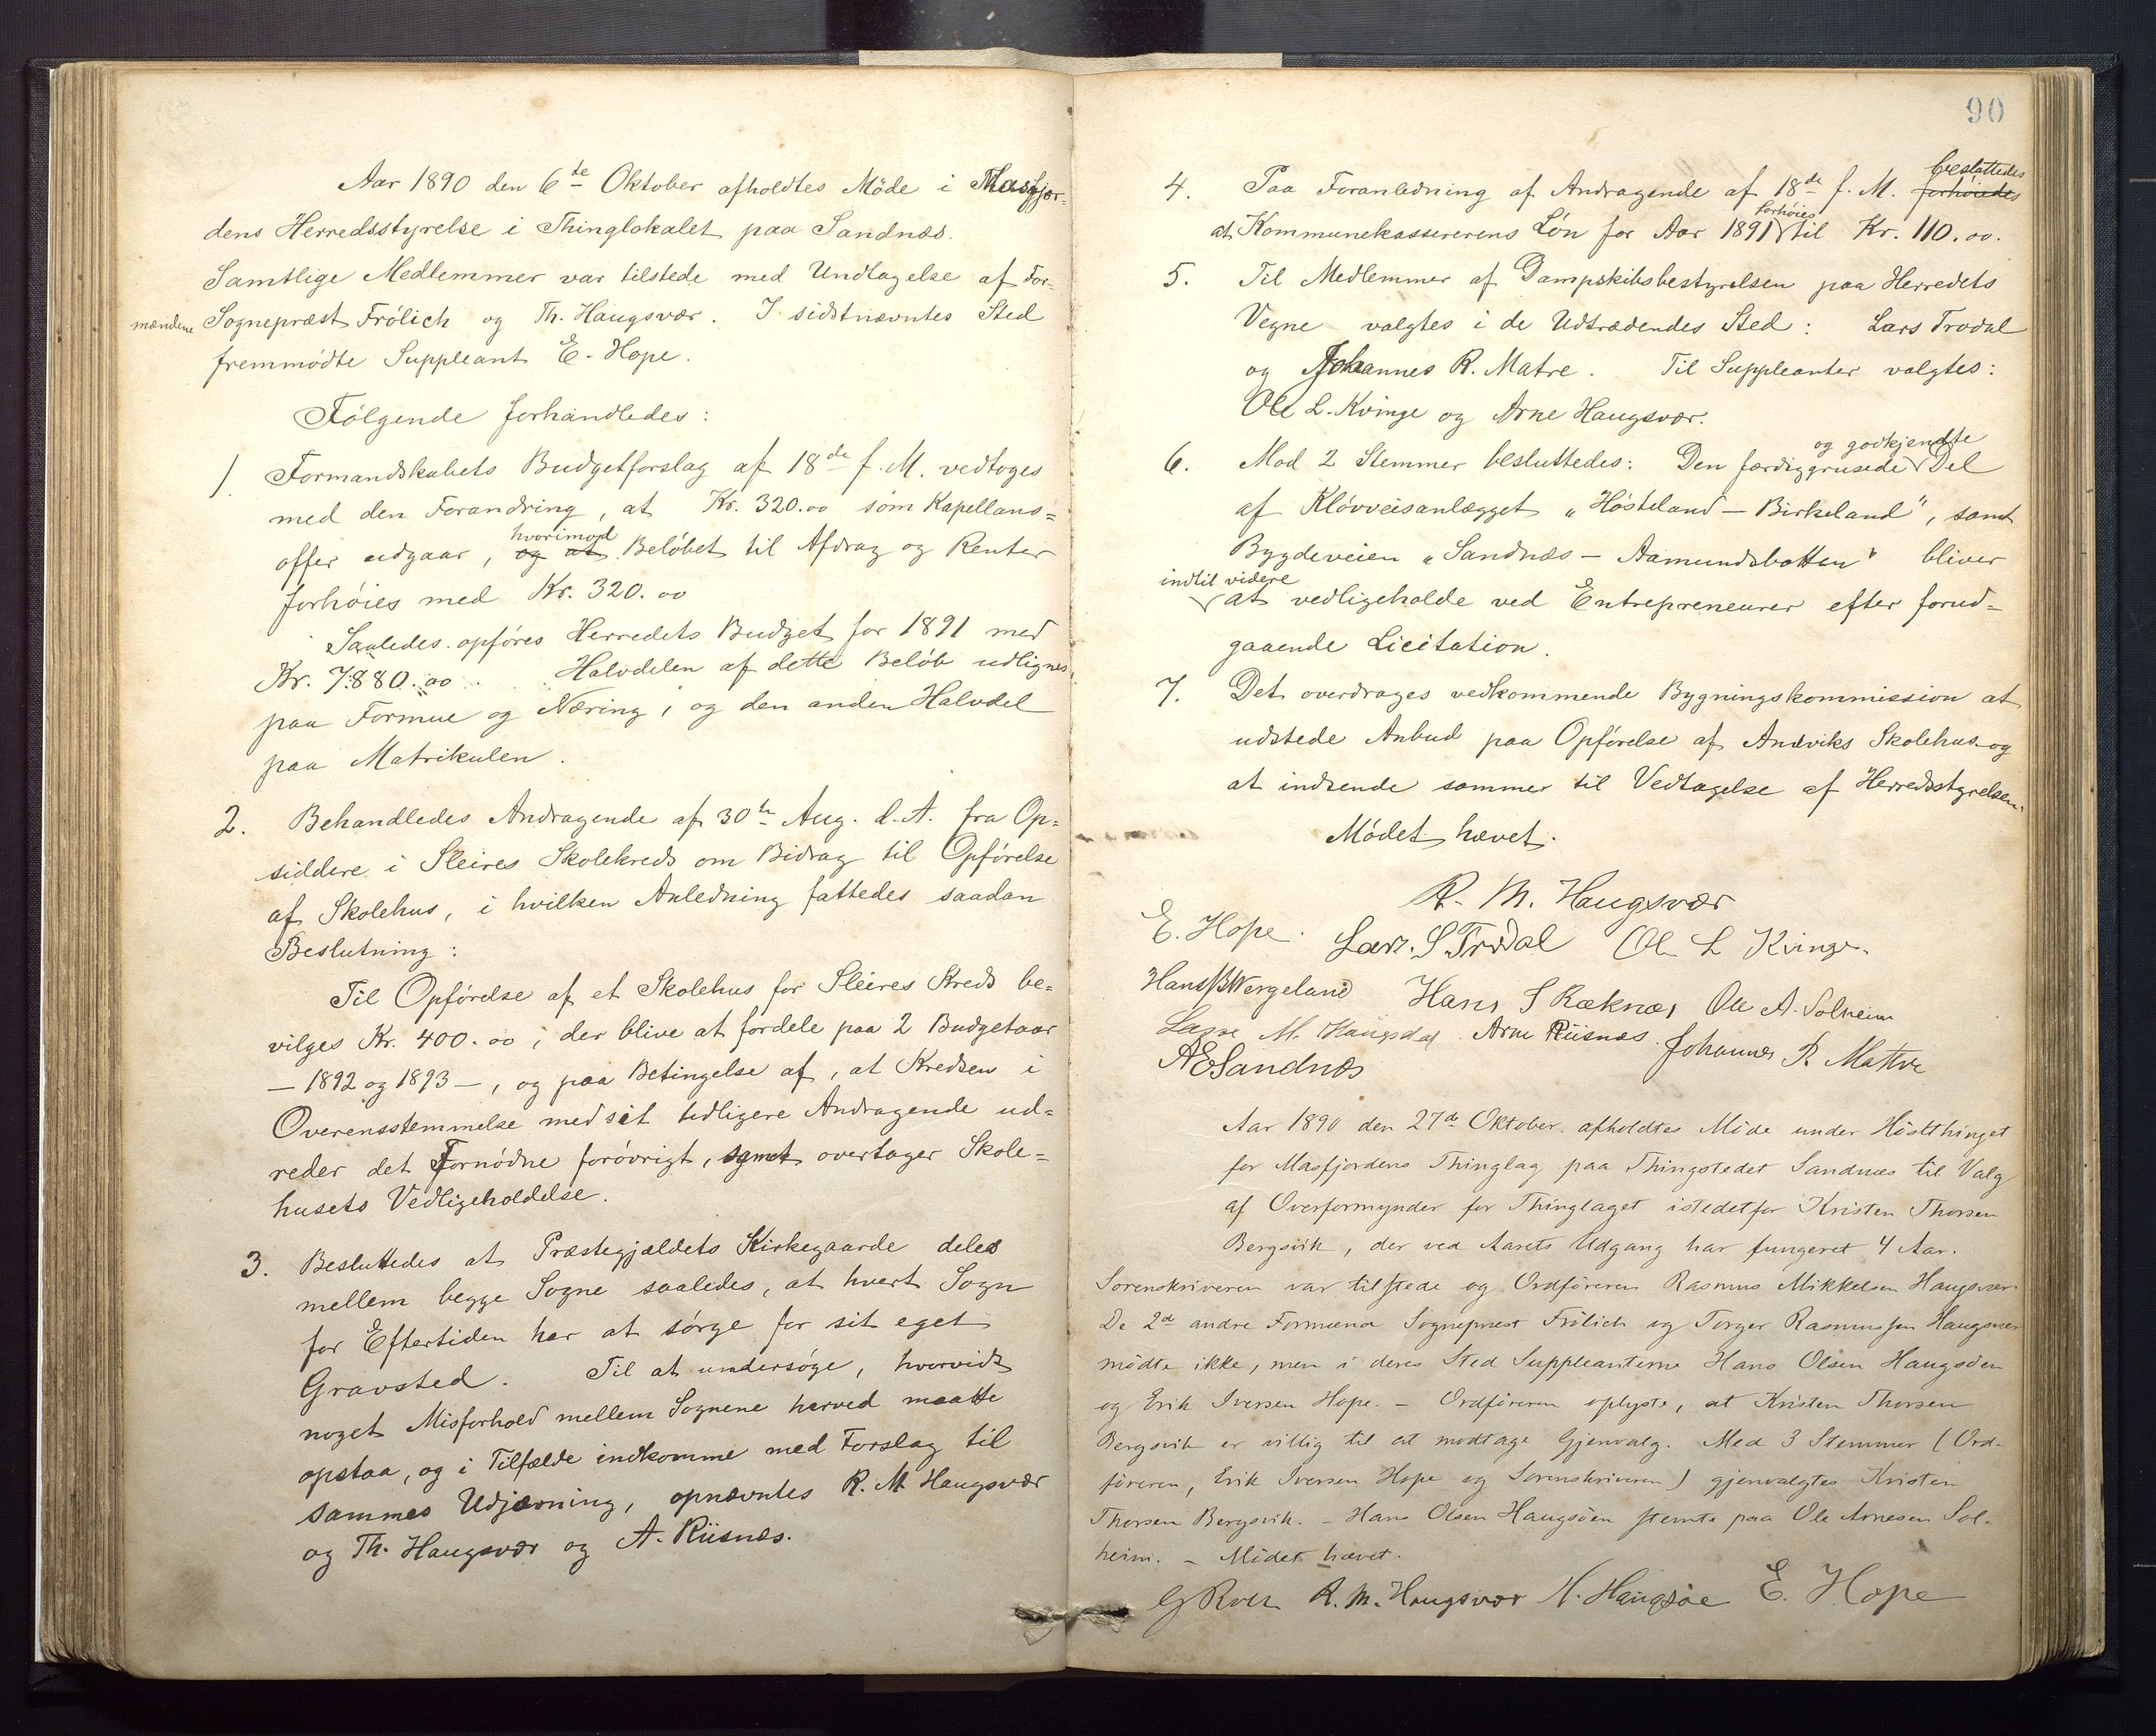 Aar 1890 den 6te Oktober afholdtes Møde i Masfjor-
dens Herredsstyrelse i Thinglokalet paa Sandnæs.
Samtlige Medlemmer var tilstede med Undtagelse af For-
mændene Sognepræst Frölich og Th. Haugsvær. I sidstnævntes Sted
fremmødte Suppleant E. Hope.
Følgende forhandledes:
1. Formandskabets Budgetforslag af 18de f. M. vedtoges
med den Forandring, at Kr. 320.00 som Kapellans-
hvorimod
offer udgaar, og at Beløbet til Afdrag og Renter
forhøies med Kr. 320.00
Saaledes opføres Herredets Budget for 1891 med
Kr. 7880.00. Halvdelen af dette Beløb udlignes
paa Formue og Næring, og den anden Halvdel
paa Matrikulen.
2. Behandledes Andragende af 30te Aug. d. A. fra Op-
siddere i Sleires Skolekreds om Bidrag til Opførelse
af Skolehus, i hvilken Anledning fattedes saadan
Beslutning:
Til Opførelse af et Skolehus for Sleires Kreds be-
vilges Kr. 400.00, der blive at fordele paa 2 Budgetaar
- 1892 og 1893 -, og paa Betingelse af, at Kredsen i
Overensstemmelse med sit tidligere Andragende ud-
reder det Fornødne forøvrigt, samt overtager Skole-
husets Vedligeholdelse.
3. Besluttedes at Præstegjældets Kirkegaarde deles
mellem begge Sogne saaledes, at hvert Sogn
for Eftertiden har at sørge for sit eget
Gravsted. Til at undersøge, hvorvidt
noget Misforhold mellem Sognene herved maatte
opstaa, og i Tilfælde indkomme med Forslag til
sammes Udjævning, opnævntes R. M. Haugsvær
og Th. Haugsvær og A. Riisnæs.
90
besluttedes
4. Paa Foranledning af Andragende af 18de f. M. forhøiedes
forhøies
at Kommunekassererens Løn for Aar 1891 til Kr. 110.00.
5. Til Medlemmer af Dampskibsbestyrelsen paa Herredets
Vegne valgtes i de Udtrædendes Sted: Lars Trodal
og Johannes R. Matre. Til Suppleanter valgtes:
Ole L. Kvinge og Arne Haugsvær.
og godkjendte
6. Mod 2 Stemmer besluttedes: Den færdiggrusede Del
af Kløvveisanlægget "Hosteland - Birkeland", samt
Bygdeveien "Sandnæs - Aamundsbotten" bliver
indtil videre
at vedligeholde ved Entrepreneurer efter forud-
gaaende Licitation.
7. Det overdrages vedkommende Bygningskommission at
udstede Anbud paa Opførelse af Andviks Skolehus og
at indsende sammer til Vedtagelse af Herredsstyrelsen.
Mødet hævet.
R. M. Haugsvær
E. Hope. Lars. S Trodal Ole L Kvinge.
Hans B Wergeland Hans S Kæknæs Ole A. Solheim
Lasse M. Haugsdal Arne Riisnæs. Johannes R. Matre
A E Sandnæs
Aar 1890 den 27de Oktober afholdtes Møde under Høstthinget
for Masfjordens Thinglag paa Thingstedet Sandnæs til Valg
af Overformynder for Thinglaget istedetfor Kristen Thorsen
Bergsvik, der ved Aarets Udgang har fungeret 4 Aar.
Sorenskriveren var tilstede og Ordføreren Rasmus Mikkelsen Haugsvær.
De 2de andre Formænd Sognepræst Frölich og Torger Rasmussen Haugsvær
mødte ikke, men i deres Sted Suppleanterne Hans Olsen Haugsøen
og Erik Iversen Hope. - Ordføreren oplyste, at Kristen Thorsen
Bergsvik er villig til at modtage Gjenvalg. Med 3 Stemmer (Ord-
føreren, Erik Iversen Hope og Sorenskriveren) gjenvalgtes Kristen
Thorsen Bergsvik. - Hans Olsen Haugsøen stemte paa Ole Arnesen Sol-
heim. - Mødet hævet.
R. M. Haugsvær H. Haugsøe E. Hope